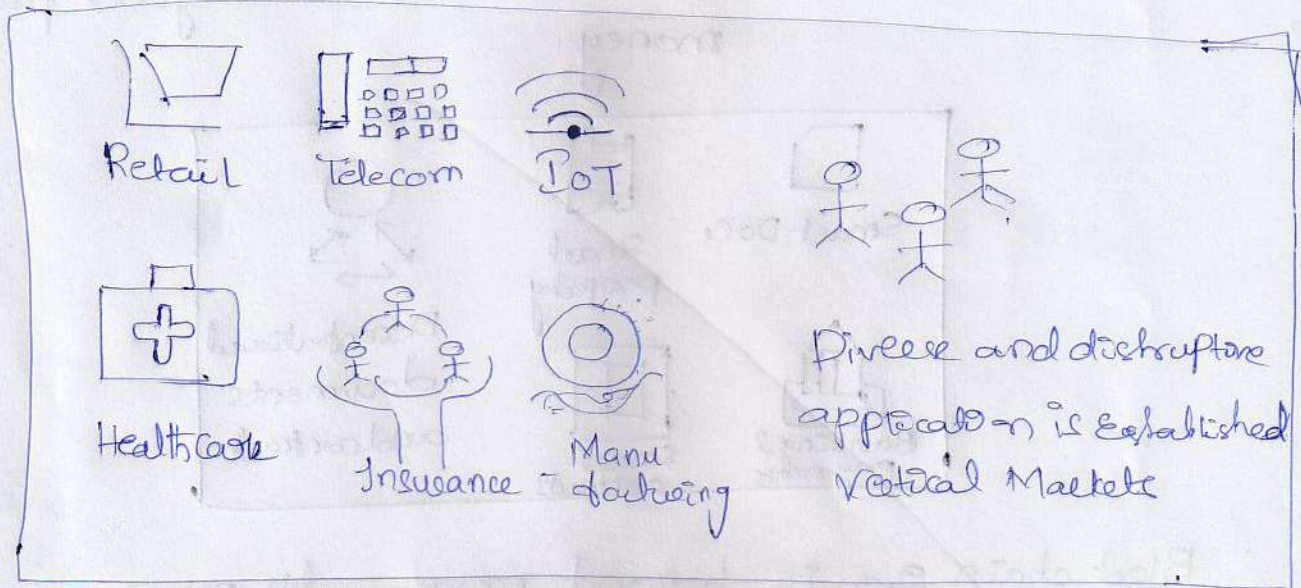 Retail Telecom IoT
Healthcare
Insurance
Manu
facturing
Diverse and distruptive
application is Established
Vertical Markets